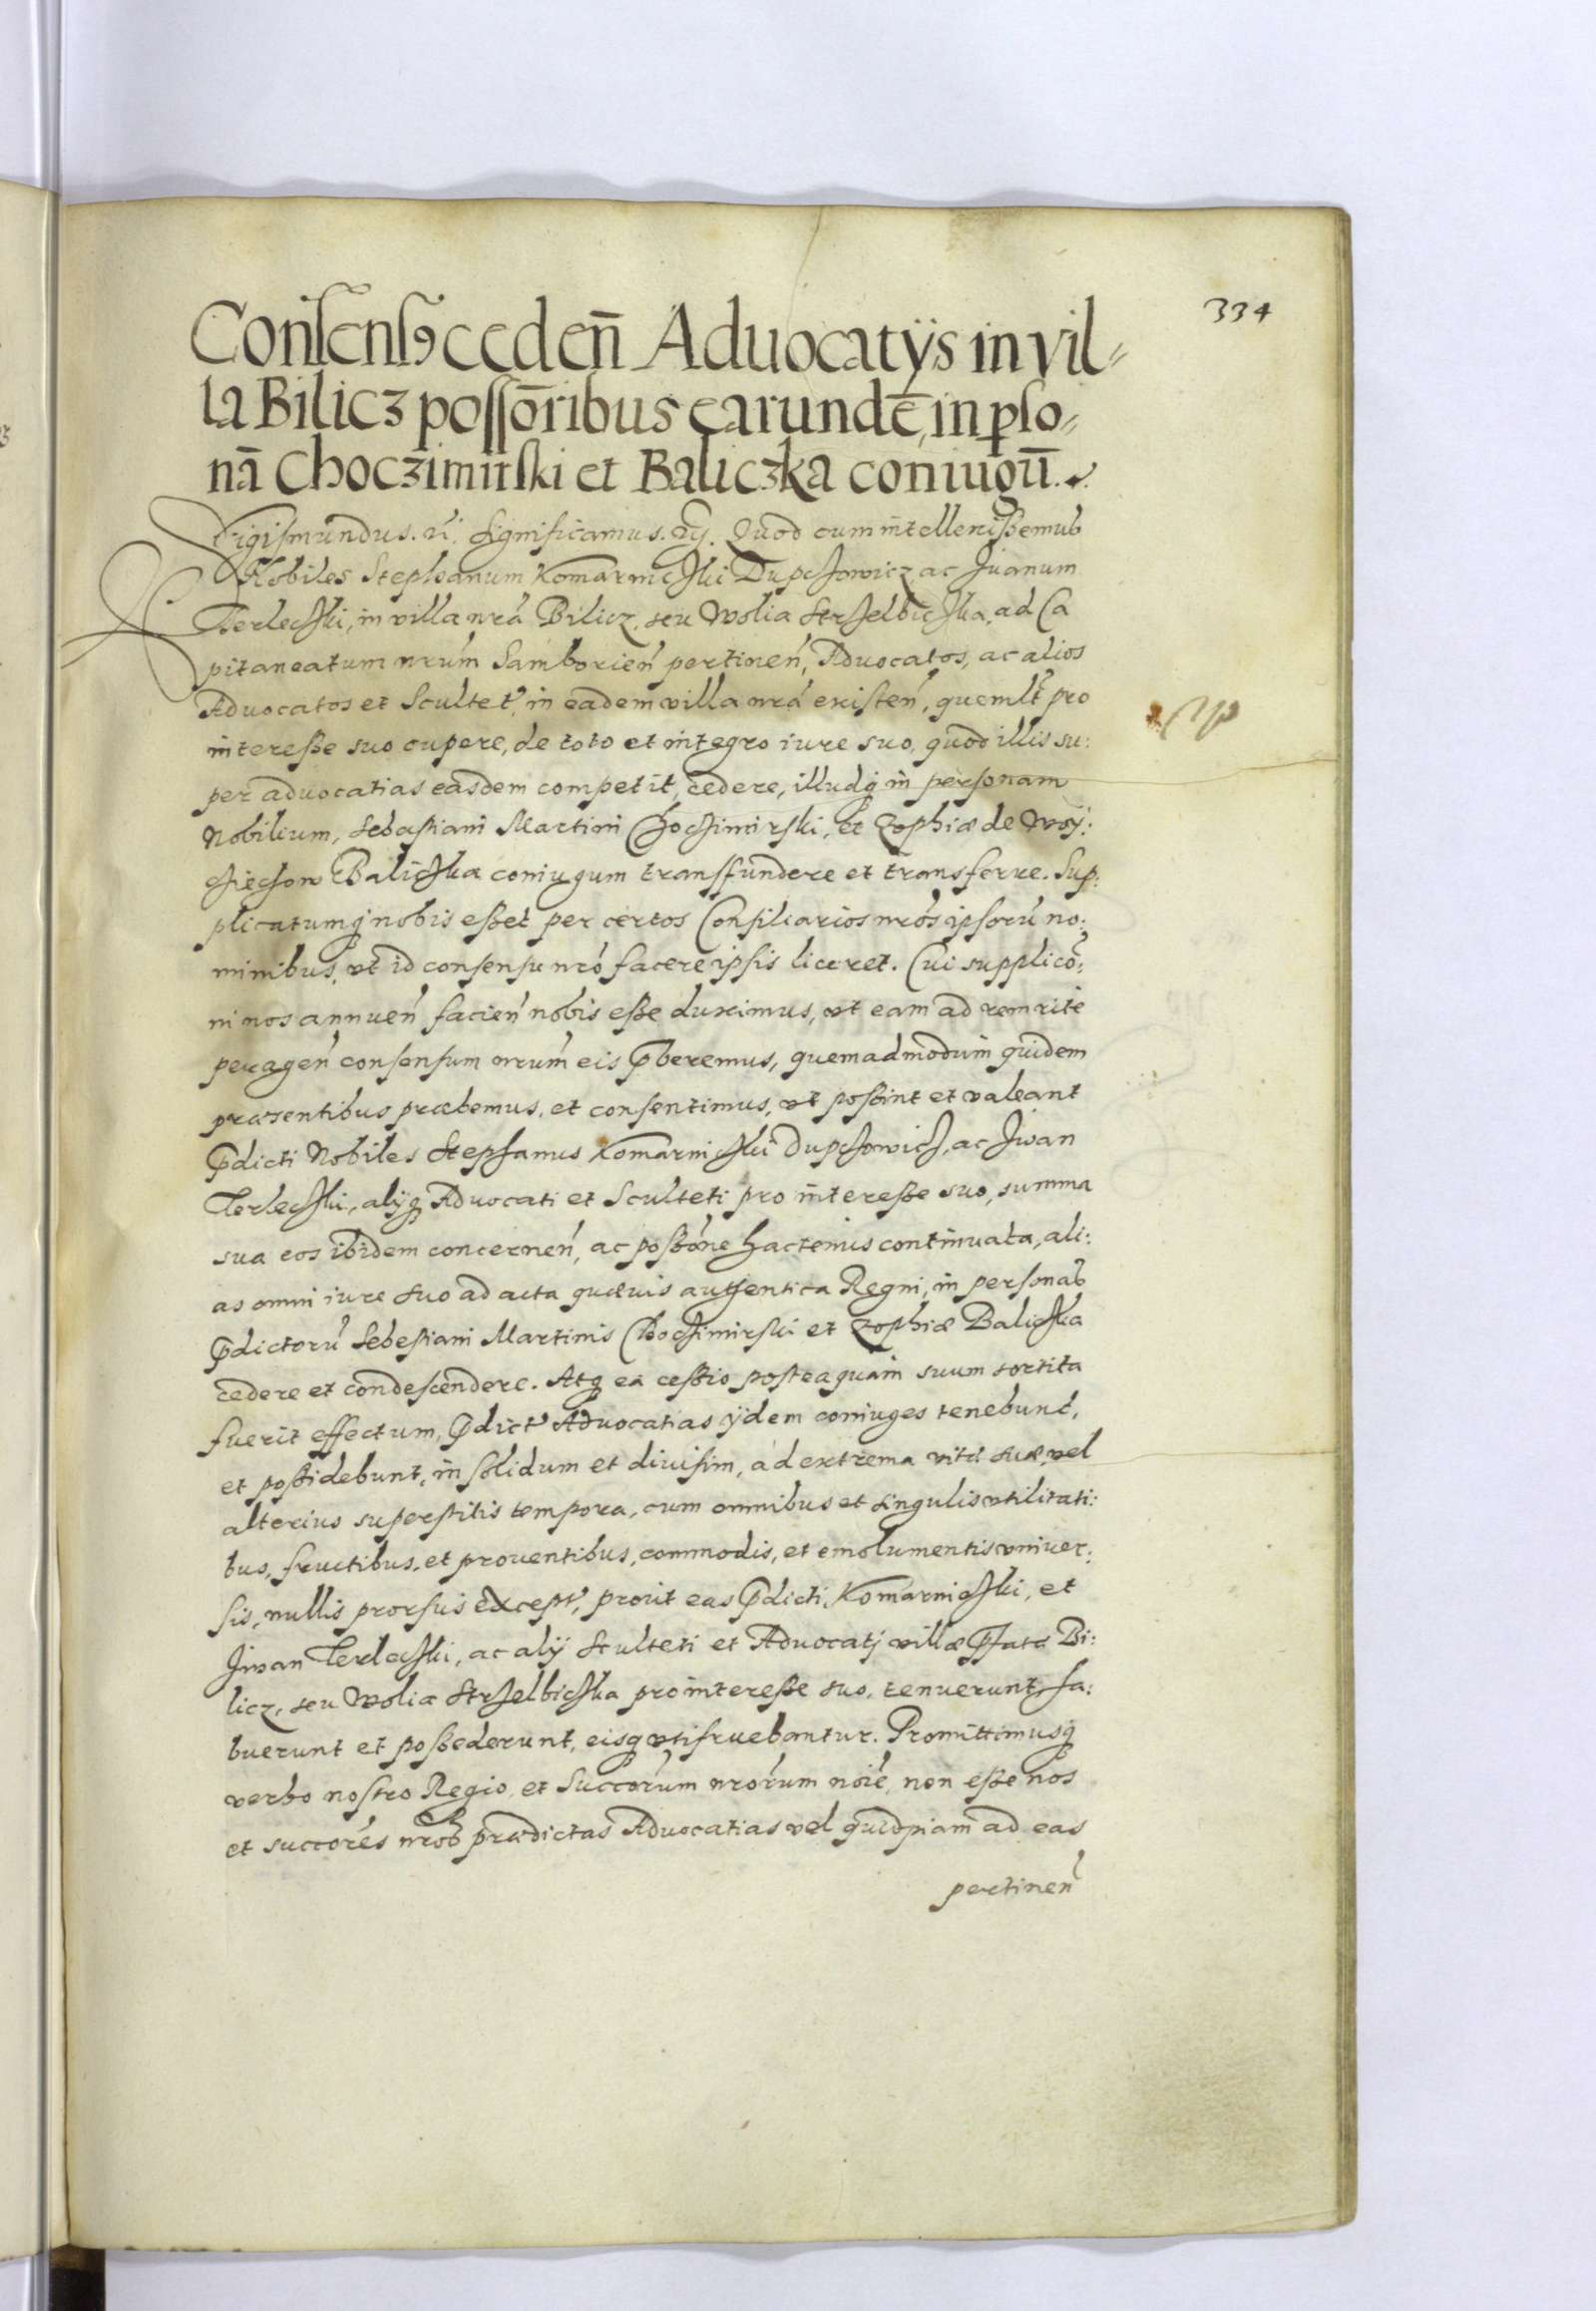 334
Consensꝰ ceden̄ Aduocatijs in vil=
la Bilicz possōribus earundē, in ꝑso=
nā Choczimirski et Baliczka coniugū.
Sigismundus. ri. significamus. rj. Quod cum intellexissemus
Nobiles Stephanum Komarniczki Dupczowicz ac Juanum
Terleczki, in villa nrā Bilicz, seu Wolia Strzelbiczka, ad Ca
pitaneatum nrūm Samborien̄ pertinen̄, Aduocatos, ac alios
Aduocatos et Scultet, in eadem villa nrā existen̄, quemlt̄ pro
interesse suo cupere, de toto et integro iure suo, quod illis su:
per aduocatias easdem competit, cedere, illudq̨ in personam
Nobilium, Sebastiani Martini Choczimirski, et Zophiæ de Woy:
cziechow Baliczka coniugum transfundere et transferre. Sup:
plicatumq̨ nobis esset per certos Consiliarios nrōs ipsorū no:
minibus, vt id consensu nrō facere ipsis liceret. Cui supplicō:
ni nos annuen̄ facien̄ nobis esse duximus, vt eam ad rem rite
peragen̄ consensum nrūm eis p̄beremus, quemadmodum quidem
præsentibus præbemus, et consentimus, vt possint et valeant
p̄dicti Nobiles Stephanus Komarniczki Dupczowicz, ac Jwan
Terleczki, alijq̨ Aduocati et Sculteti pro interesse suo, summa
sua eos ibidem concernen̄, ac possōne hactenus continuata, ali:
as omni iure suo ad acta quæuis authentica Regni, in personas
p̄dictorū Sebestiani Martinis Choczimirski et Zophiæ Baliczka
cedere et condescendere. Atq̨ ea cessio posteaquam suum sortita
fuerit effectum, p̄dict Aduocatias ijdem coniuges tenebunt,
et possidebunt, in solidum et diuisim, ad extrema vitæ suæ, vel
alterius superstitis tempora, cum omnibus et singulis vtilitati:
bus, fructibus, et prouentibus, commodis, et emolumentis vniuer:
sis, nullis prorsus except, prout eas p̄dicti, Komarniczki, et
Jwan Terleczki, ac alij Sculteti et Aduocatj villæ p̄fatæ Bi:
licz, seu Wolia Strzelbiczka pro interesse suo, tenuerunt, ha:
buerunt et possederunt, eisq̨ vtifruebantur. Promittimusq̨
verbo nostro Regio, et Succorūm nrōrum noīe, non esse nos
et succorēs nrōs prædictas Aduocatias vel quidpiam ad eas
pertinen̄